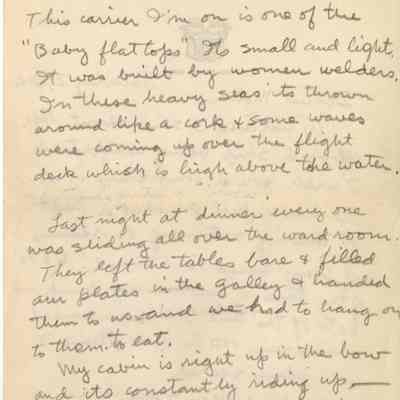 This carrier I'm on is one of the
"Baby flat tops" Its small and light.
It was built by women welders.
In these heavy seas its thrown
around like a cork & some waves
were coming up over the flight
deck which is high above the water.
Last night at dinner every one
was sliding all over the ward room.
They left the tables bare & filled
our plates in the galley & handed
them to us and we had to hang on
to them to eat.
My cabin is right up in the bow
and its constantly riding up